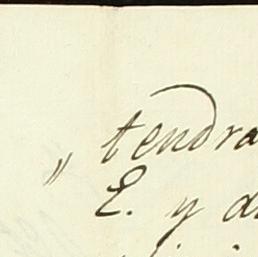 „ tendra
E. y d